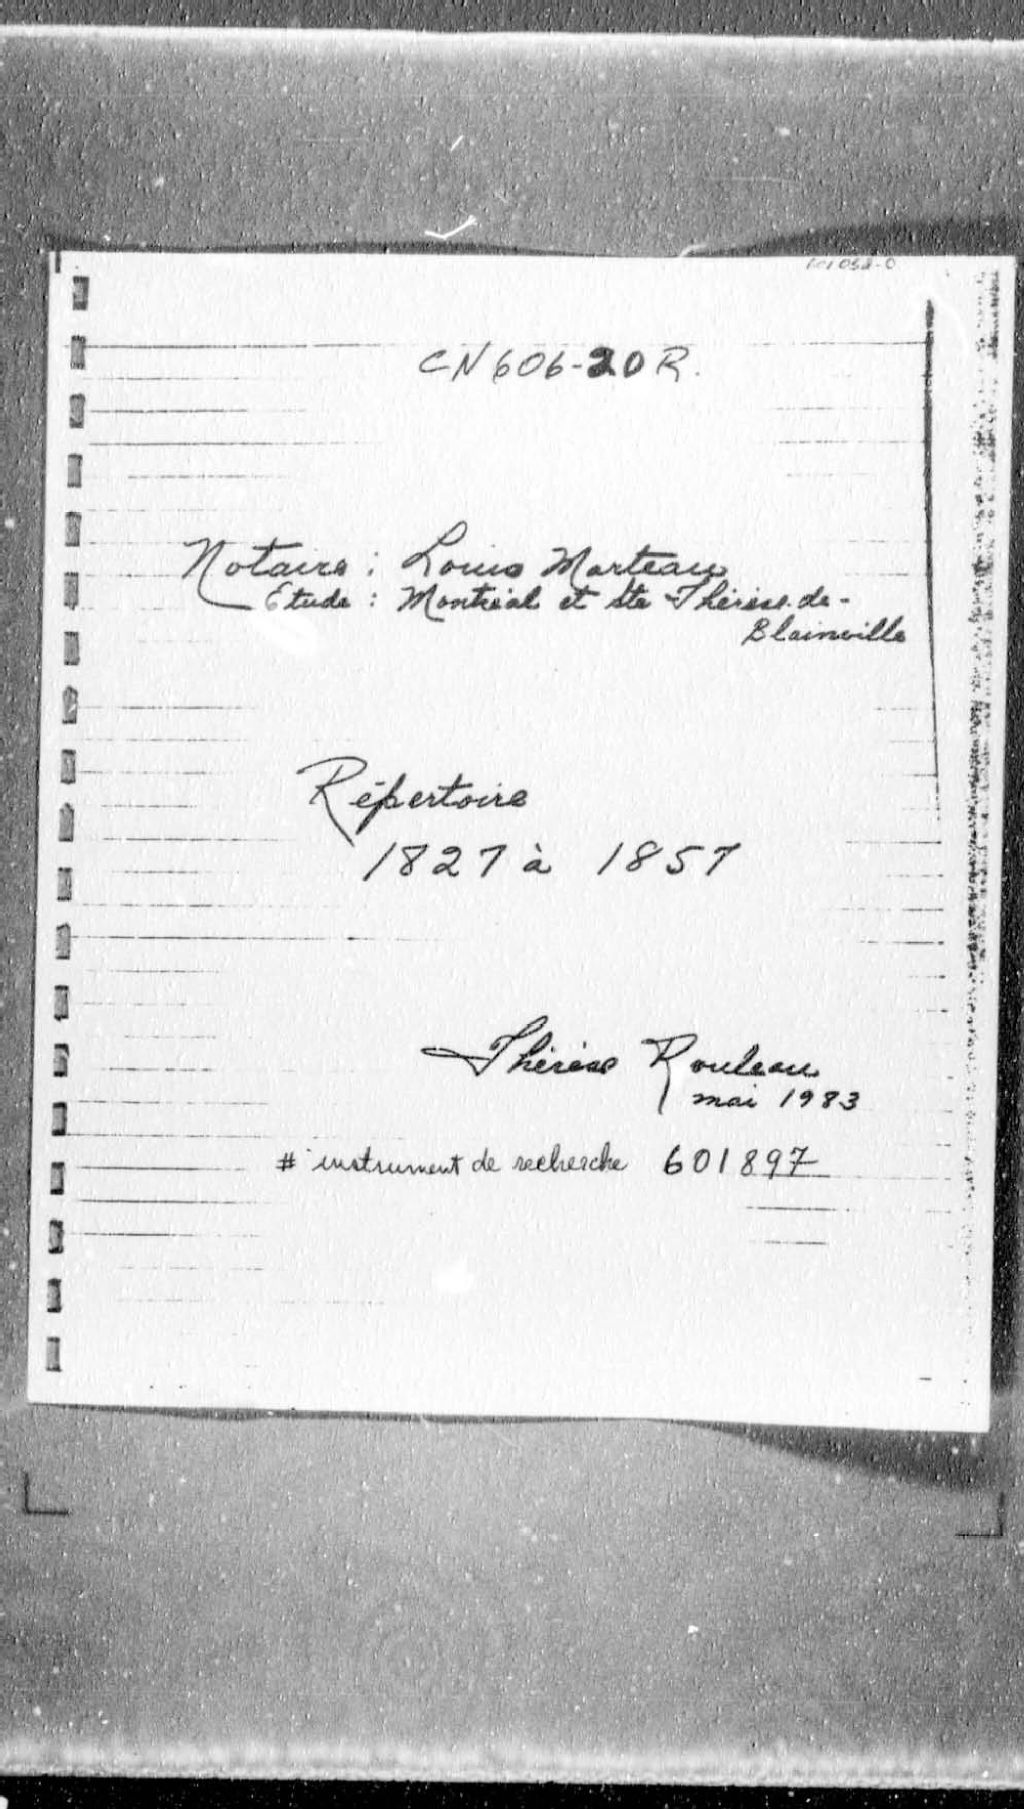 CN606-20R.
Notaire : Louis Marteau
Etude : Montréal et Ste Thérèse-de-
Blainville
Répertoire
1827 à 1857
Thérèse Rouleau
mai 1983
# instrument de recherche 601897